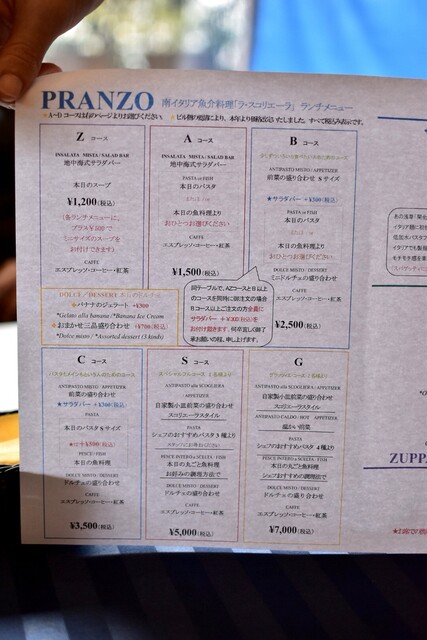 PRANZO 南イタリア魚介料理「ラ・スコリエーラ」 ランチメニュー
Z コース
INSALATA MISTA / SALAD BAR
地中海式サラダバー
本日のスープ
¥1,200(税込)
(各ランチメニューに、
プラス¥500で
ミニサイズのスープを
お付けできます)
CAFFE
エスプレッソ・コーヒー・紅茶
A コース
INSALATA MISTA / SALAD BAR
地中海式サラダバー
PASTA or FISH
本日のパスタ
または
本日の魚料理より
おひとつお選びください
CAFFE
エスプレッソ・コーヒー・紅茶
¥1,500(税込)
B コース
ANTIPASTO MISTO / APPETIZER
前菜の盛り合わせ Sサイズ
★サラダバー +¥300(税込)
PASTA or FISH
本日のパスタ
または
本日の魚料理より
おひとつお選びください
DOLCE MISTO / DESSERT
ミニドルチェ盛り合わせ
CAFFE
エスプレッソ・コーヒー・紅茶
¥2,500(税込)
同テーブルで、AZコースとB以上
のコースを同時に御注文の場合
B コース以上ご注文の方全員に
サラダバー +¥300(税込)を
お付け頂きます。何卒宜しく御了
承お願いの程、申し上げます。
バナナのジェラート +¥300
*Gelato alla banana / *Banana Ice Cream
おまかせ三品盛り合わせ +¥700(税込)
*Dolce misto / *Assorted dessert (3 kinds)
C コース
ANTIPASTO MISTO / APPETIZER
前菜の盛り合わせ
★サラダバー +¥300(税込)
PASTA
本日のパスタ Sサイズ
PESCE / FISH
本日の魚料理
DOLCE MISTO / DESSERT
ドルチェの盛り合わせ
CAFFE
エスプレッソ・コーヒー・紅茶
¥3,500(税込)
S コース
ANTIPASTO alla SCOGLIERA
APPETIZER
自家製小皿前菜の盛り合わせ
スコリエーラスタイル
PASTA
シェフのおすすめパスタ3種より
PESCE INTERO a SCELTA / FISH
本日の丸ごと魚料理
お好みの調理方法で
DOLCE MISTO / DESSERT
ドルチェの盛り合わせ
CAFFE
エスプレッソ・コーヒー・紅茶
¥5,000(税込)
G コース
ANTIPASTO alla SCOGLIERA
APPETIZER
自家製小皿前菜の盛り合わせ
スコリエーラスタイル
ANTIPASTO CALDO / HOT APPETIZER
温かい前菜
PASTA
シェフのおすすめパスタ 4種より
PESCE INTERO a SCELTA / FISH
本日の丸ごと魚料理
シェフおすすめの調理法で
DOLCE MISTO / DESSERT
ドルチェの盛り合わせ
CAFFE
エスプレッソ・コーヒー・紅茶
¥7,000(税込)
ZUPP